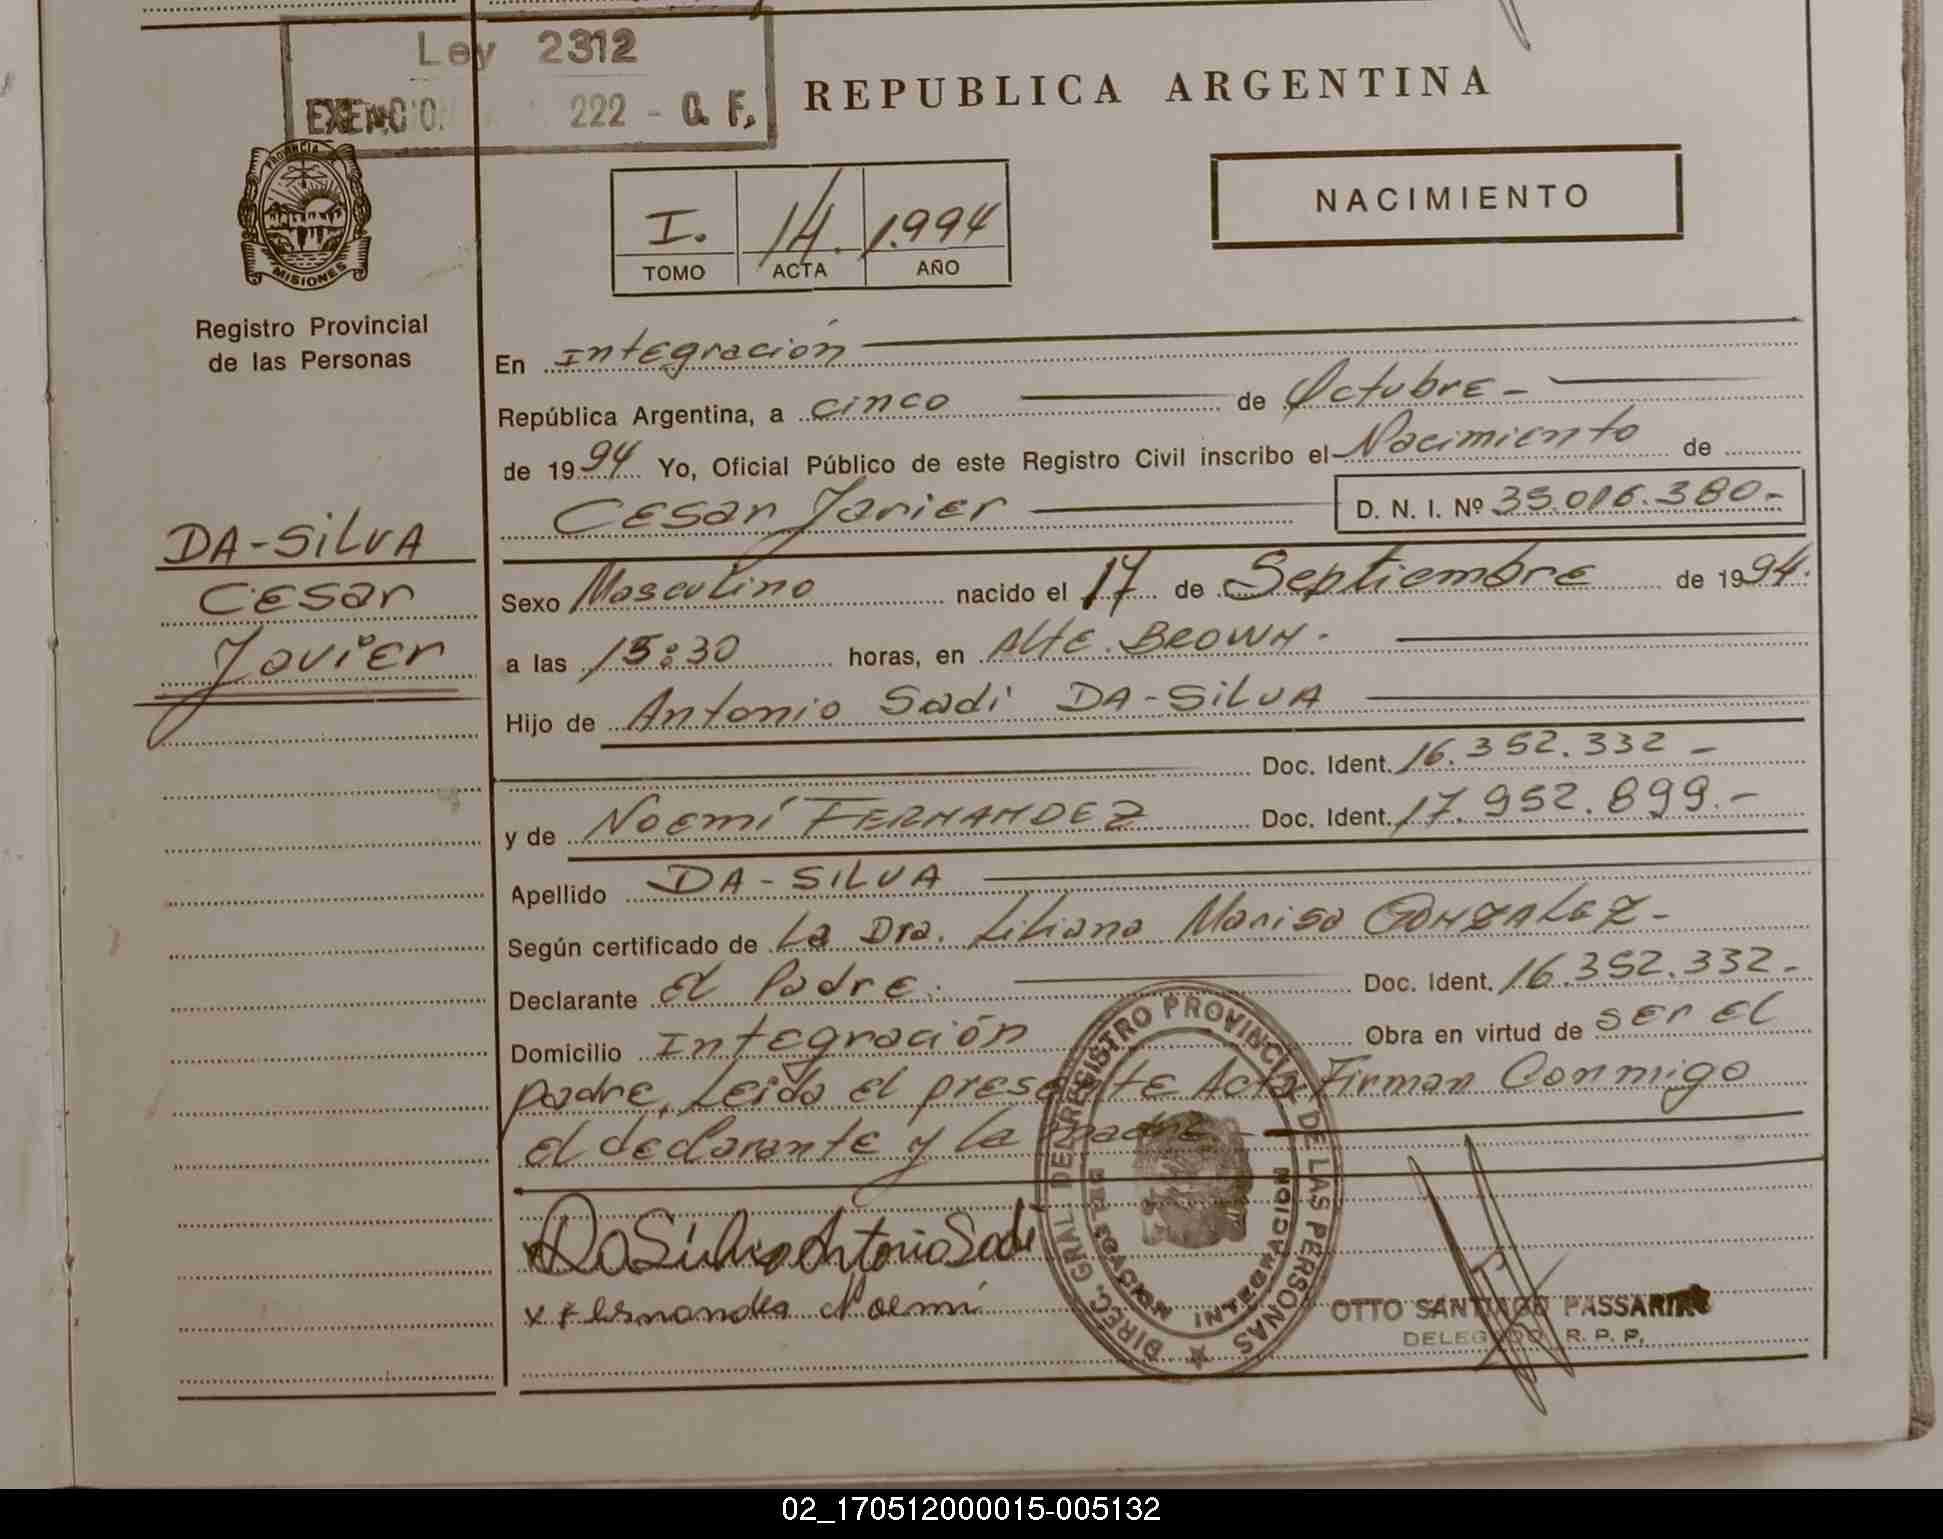 Ley 2312
EXENCION 222 - Q. F.
REPUBLICA ARGENTINA
NACIMIENTO
PROVINCIA
MISIONES
Registro Provincial
de las Personas
I. 14. 1.994
TOMO ACTA AÑO
DA-SiLVA
Cesar
Javier
En Integración
República Argentina, a cinco de Octubre -
de 1994 Yo, Oficial Público de este Registro Civil inscribo el Nacimiento de
Cesar Javier D. N. I. Nº 35.016.380.-
Sexo Masculino nacido el 17 de Septiembre de 1994.
a las 15:30 horas, en Alte. Brown.
Hijo de Antonio Sadi DA-SiLVA
Doc. Ident. 16.352.332 -
y de Noemí FERNANDEZ Doc. Ident. 17.952.899.-
Apellido DA-SILVA
Según certificado de La Dra. Liliana Marisa GONZALEZ -
Declarante el Padre. Doc. Ident. 16.352.332.-
Domicilio Integración Obra en virtud de ser el
padre, Leida el presente Acta Firman Conmigo
el declarante y la madre
DaSilva Antonio Sadi
x Fernandez Noemí
DIREC. GRAL DEL REGISTRO PROVINCIAL DE LAS PERSONAS
DELEGACION INTEGRACION
OTTO SANTIAGO PASSARINO
DELEGADO R. P. P.
02_170512000015-005132